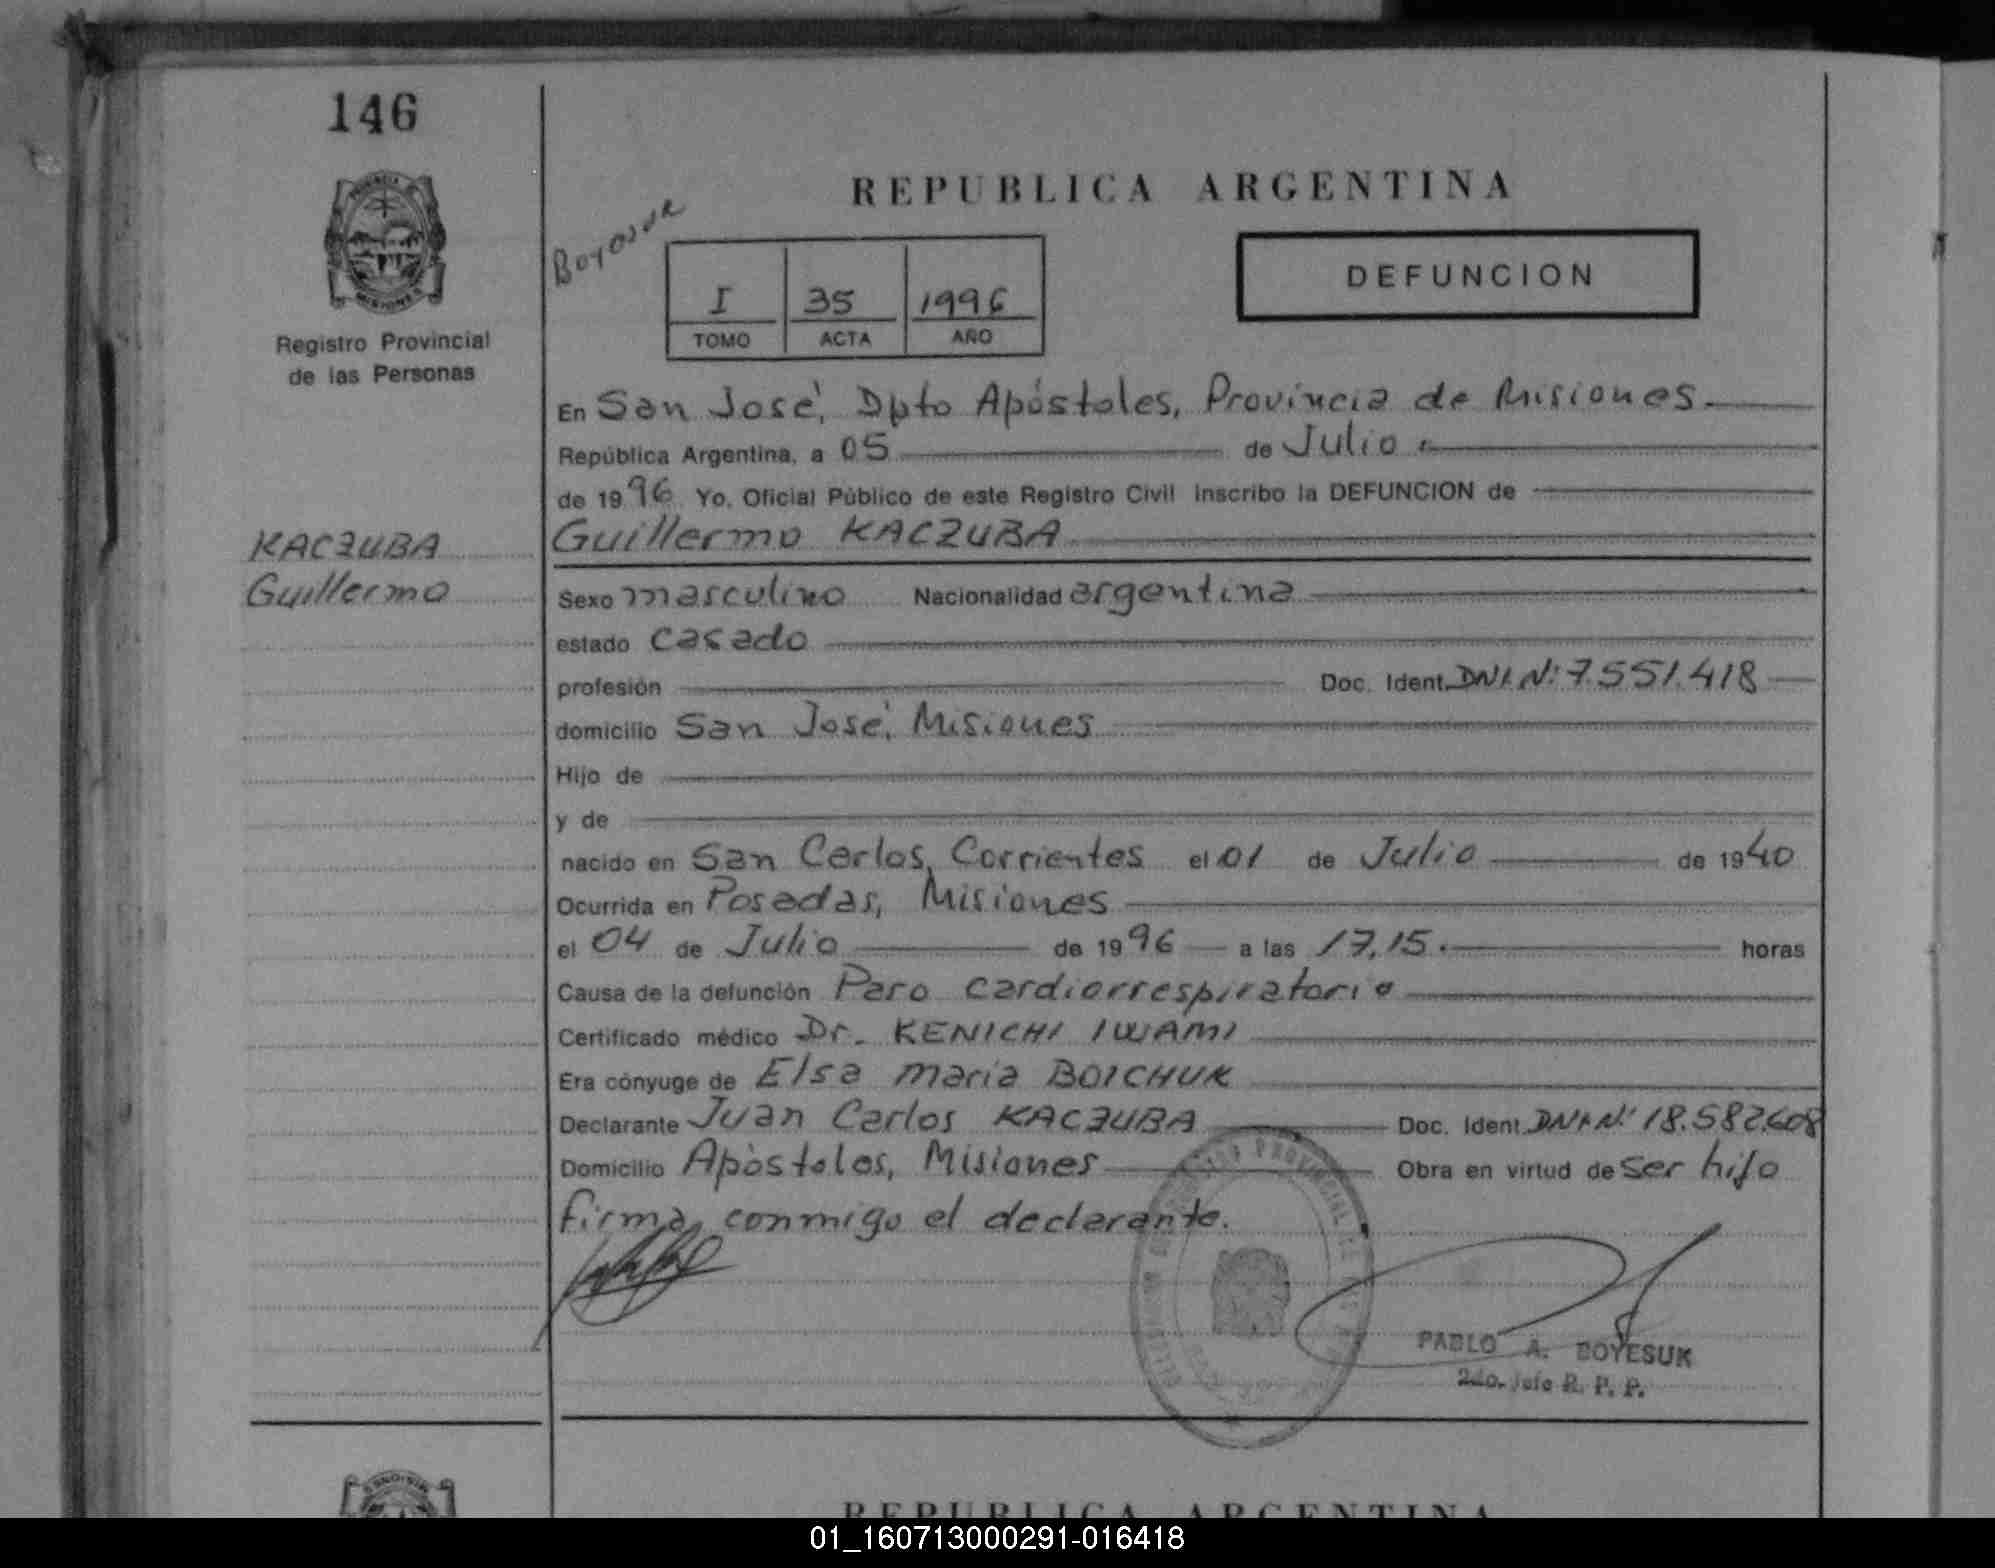 146
PROVINCIA DE
MISIONES
Registro Provincial
de las Personas
KACZUBA
Guillermo
REPUBLICA ARGENTINA
I 35 1996
TOMO ACTA AÑO
DEFUNCION
En San José, Dpto Apóstoles, Provincia de Misiones.
República Argentina, a 05 de Julio
de 1996 Yo, Oficial Público de este Registro Civil inscribo la DEFUNCION de
Guillermo KACZUBA
Sexo masculino Nacionalidad argentina
estado casado
profesión Doc. Ident. DNI. N: 7.551.418
domicilio San José, Misiones
Hijo de
y de
nacido en San Carlos, Corrientes el 01 de Julio de 1940
Ocurrida en Posadas, Misiones
el 04 de Julio de 1996 a las 17,15. horas
Causa de la defunción Paro cardiorrespiratorio
Certificado médico Dr. KENICHI IWAMI
Era cónyuge de Elsa Maria BOICHUK
Declarante Juan Carlos KACZUBA Doc. Ident. DNI N: 18.582.608
Domicilio Apóstoles, Misiones Obra en virtud de ser hijo
firma conmigo el declarante.
PROVINCIAL DE
PABLO A. BOYESUK
2do. Jefe R. P. P.
MISIONES
REPUBLICA ARGENTINA
01_160713000291-016418